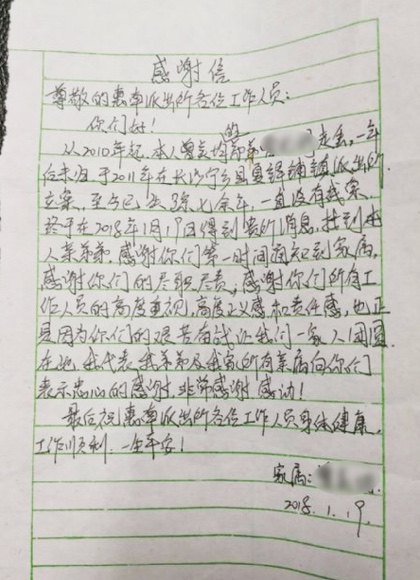 感谢信
尊敬的惠南派出所各位工作人员：
你们好！
从2010年起，本人曾美均的弟弟 走丢，一年
后来归于2011年在长沙宁乡县 铺镇派出所
立案，至今已去3余七余年，一直没有线索，
终于在2018年1月19日得到您的消息，找到本
人弟弟，感谢你们第一时间通知到家属，
感谢你们的尽职尽责，感谢你们所有工
作人员的高度重视，高度正义感和责任感，也正
是因为你们的艰苦奋战让我们一家人团圆
在此，我代表我弟弟及我家所有亲属向你们
表示忠心的感谢，非常感谢 感动！
最后祝惠南派出所各位工作人员身体健康，
工作顺利，一生平安！
家属：
2018.1.19.